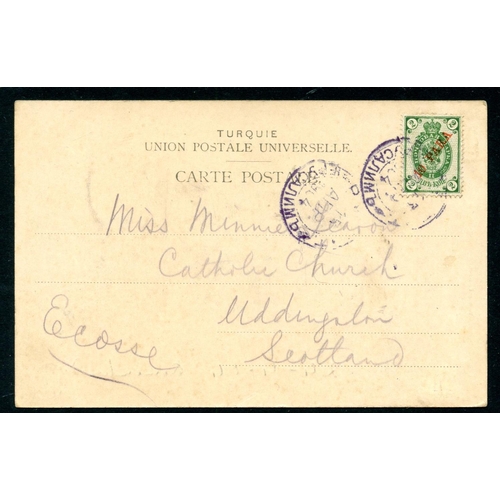 TURQUIE
UNION POSTALE UNIVERSELLE.
CARTE POSTALE
2 2
PARA
Miss Minnie
Catholic Church
Uddingston
Ecosse
Scotland